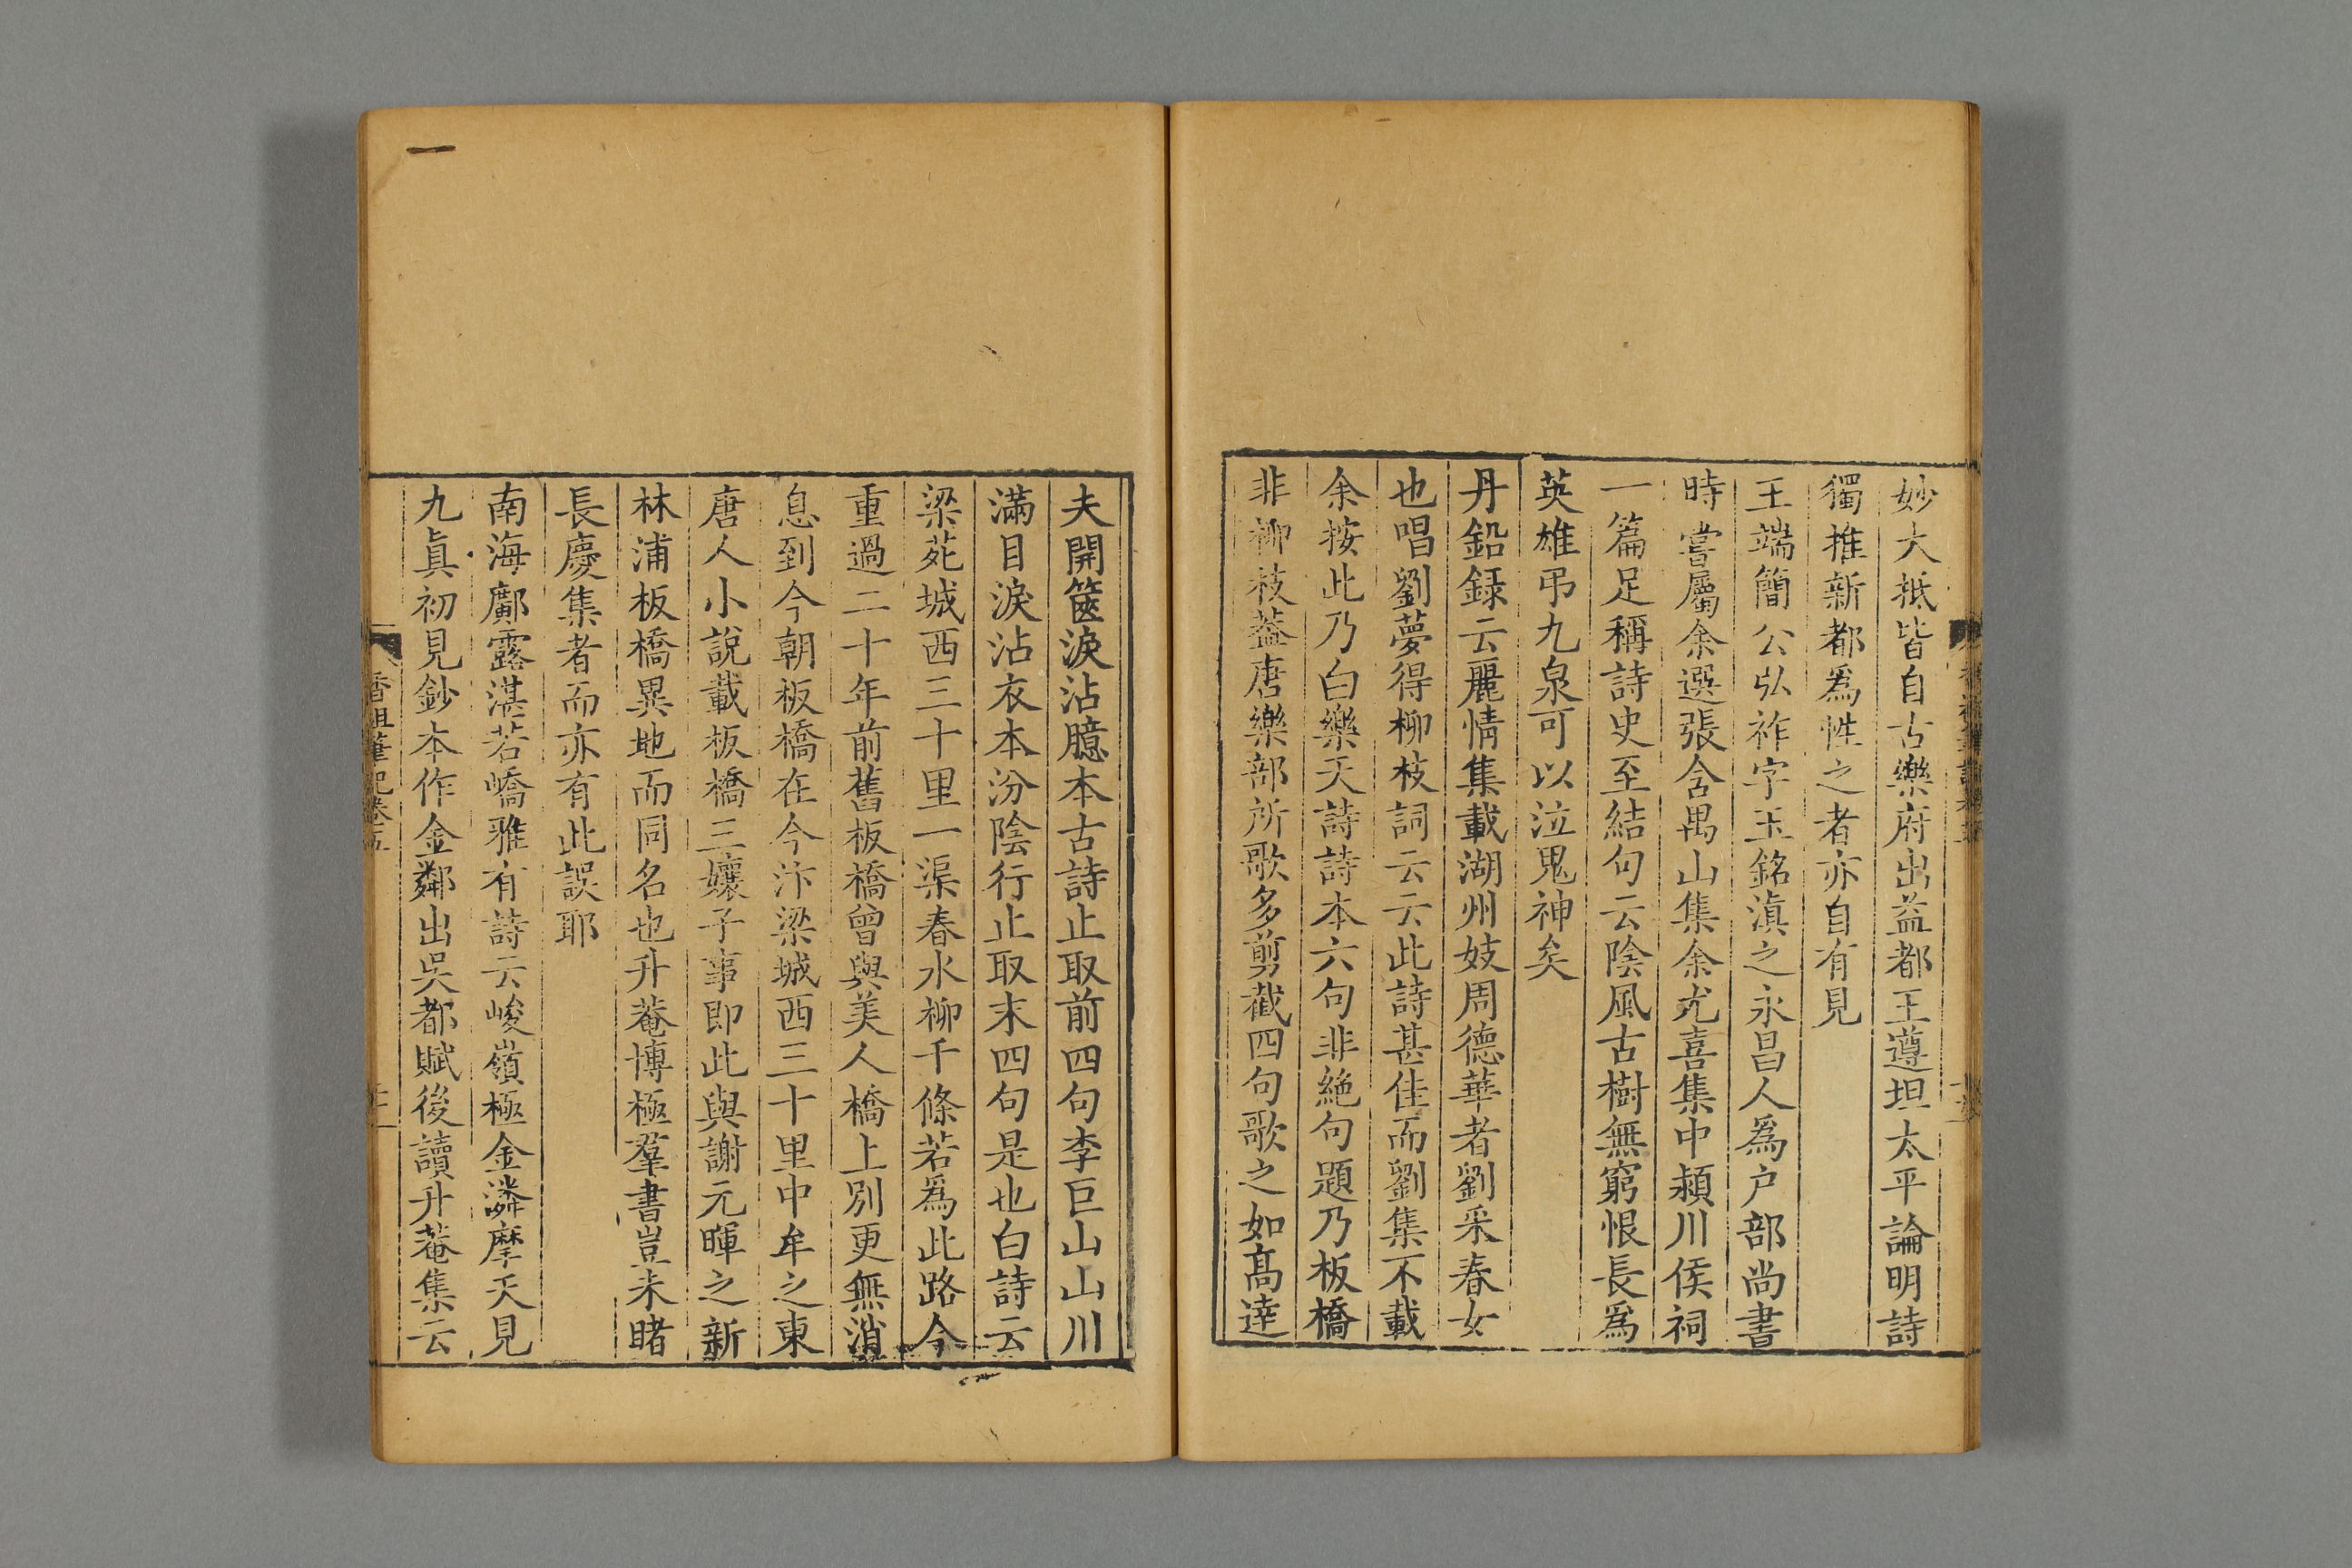 妙大抵皆自古樂府出益都王遵坦太平論明詩
獨推新都爲性之者亦自有見
王端簡公弘祚字玉銘滇之永昌人爲户部尚書
時嘗屬余選張含禺山集余尤喜集中潁川侯祠
一篇足稱詩史至結句云陰風古樹無窮恨長爲
英雄弔九泉可以泣鬼神矣
丹鉛録云麗情集載湖州妓周德華者劉采春女
也唱劉夢得柳枝詞云云此詩甚佳而劉集不載
余按此乃白樂天詩詩本六句非絶句題乃板橋
非柳枝葢唐樂部所歌多剪截四句歌之如高達
夫開篋淚沾臆本古詩止取前四句李巨山山川
滿目淚沾衣本汾陰行止取末四句是也白詩云
梁苑城西三十里一渠春水柳千條若爲此路今
重過二十年前舊板橋曾與美人橋上別更無消
息到今朝板橋在今汴梁城西三十里中牟之東
唐人小說載板橋三孃子事即此與謝元暉之新
林浦板橋異地而同名也升菴博極羣書豈未睹
長慶集者而亦有此誤耶
南海鄺露湛若嶠雅有詩云峻嶺極金潾摩天見
九真初見鈔本作金鄰出吳都賦後讀升菴集云
香祖筆記卷五